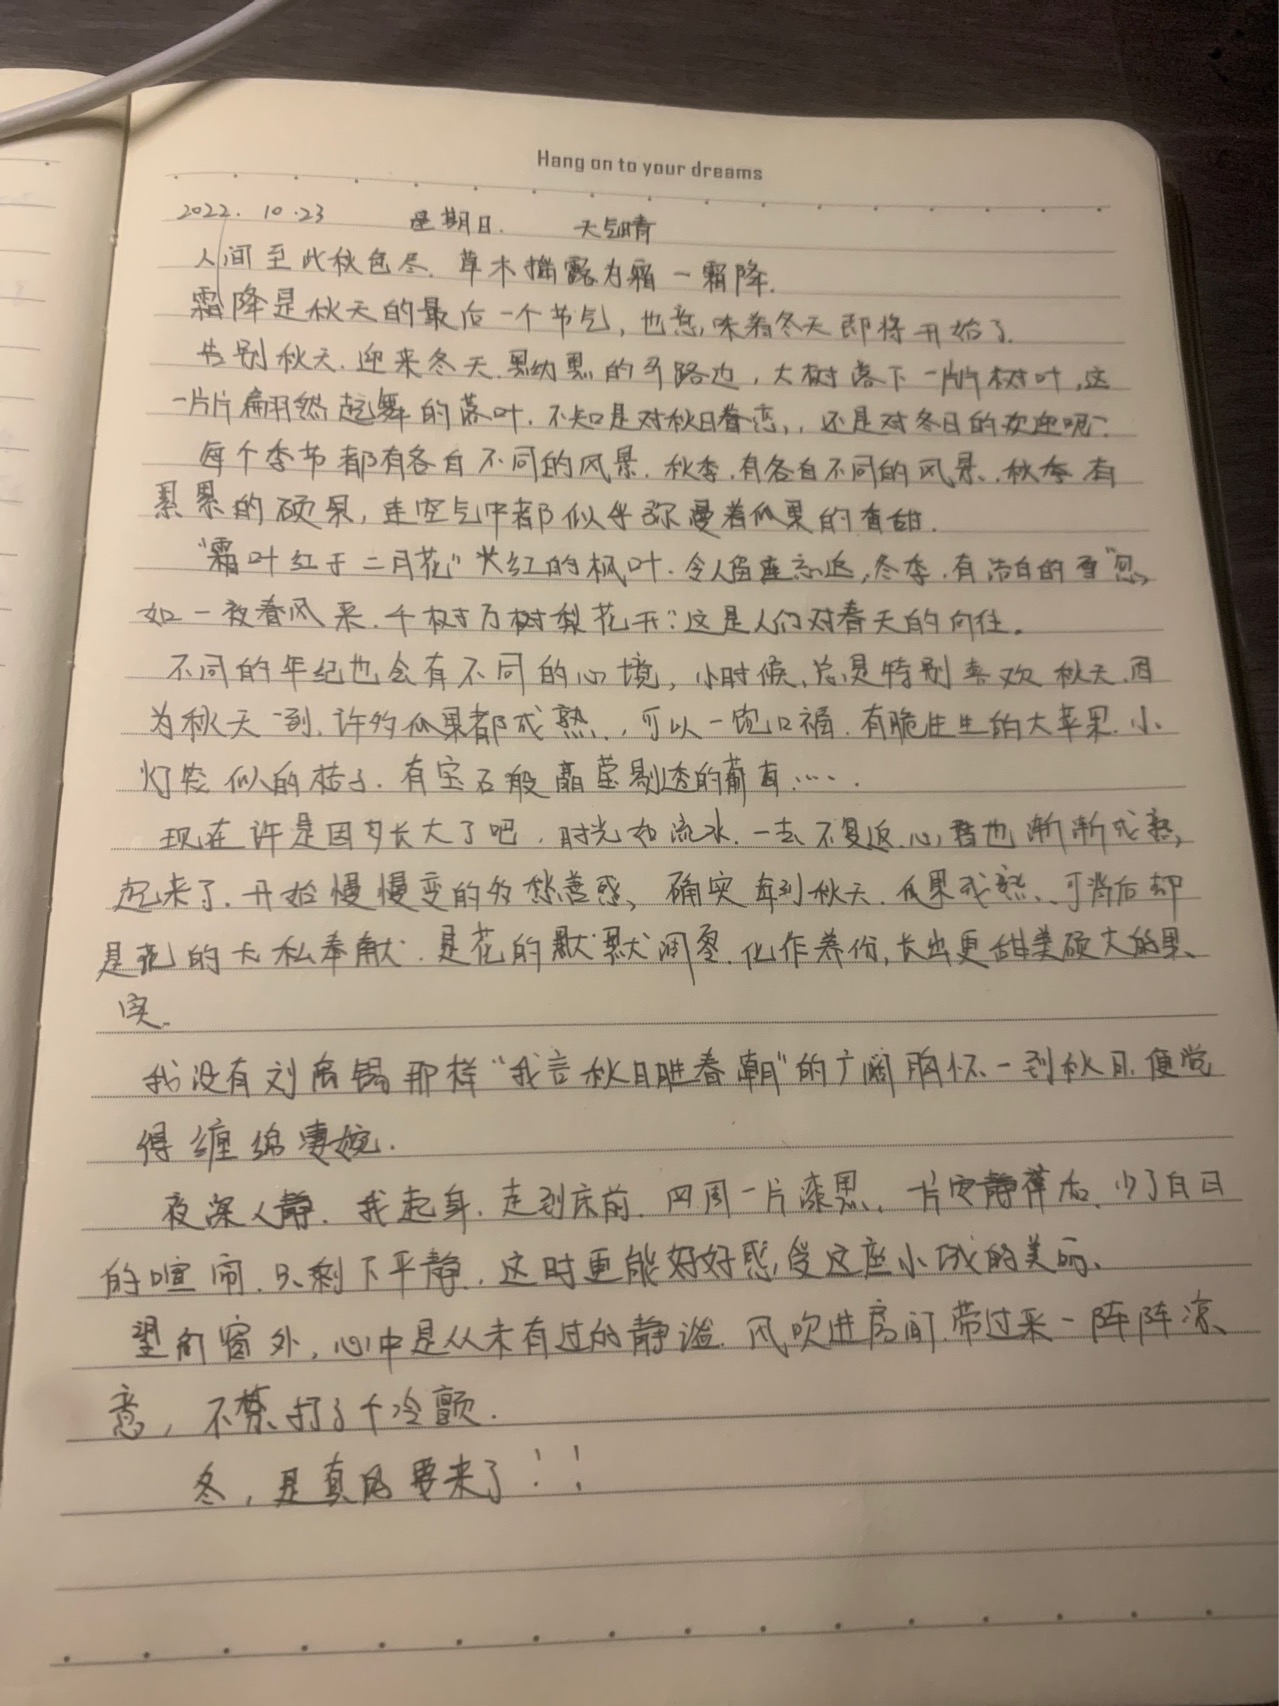 Hang on to your dreams
2022. 10.23 星期日. 天气晴
人间至此秋色尽. 草木摇露为霜一霜降.
霜降是秋天的最后一个节气, 也意味着冬天即将开始了.
告别秋天. 迎来冬天. 黑黝黑的马路边, 大树落下一片片树叶, 这
一片片翩翩然起舞的落叶. 不知是对秋日眷恋, 还是对冬日的欢迎呢?
每个季节都有各自不同的风景. 秋季. 有各自不同的风景. 秋季有
累累的硕果, 连空气中都似乎弥漫着瓜果的香甜.
"霜叶红于二月花" 火红的枫叶. 令人留连忘返, 冬季. 有洁白的雪 "忽
如一夜春风来. 千树万树梨花开": 这是人们对春天的向往.
不同的年纪也会有不同的心境, 小时候, 总是特别喜欢秋天. 因
为秋天一到. 许多瓜果都成熟, 可以一饱口福. 有脆生生的大苹果. 小
灯笼似的桔子. 有宝石般晶莹剔透的葡萄.....
现在许是因为长大了吧, 时光如流水. 一去不复返. 心智也渐渐成熟
起来了. 开始慢慢变的多愁善感, 确实每到秋天. 瓜果成熟. 可背后却
是花的无私奉献. 是花的默默凋零. 化作养份, 长出更甜美硕大的果
实.
我没有刘禹锡那样 "我言秋日胜春朝" 的广阔胸怀. 一到秋日. 便觉
得缠绵凄婉.
夜深人静. 我起身. 走到床前. 四周一片漆黑. 一片安静 少了白日
的喧闹. 只剩下平静. 这时更能好好感受这座小城的美丽.
望向窗外, 心中是从未有过的静谧. 风吹进房间. 带过来一阵阵凉
意, 不禁打了个冷颤.
冬, 是真的要来了!!